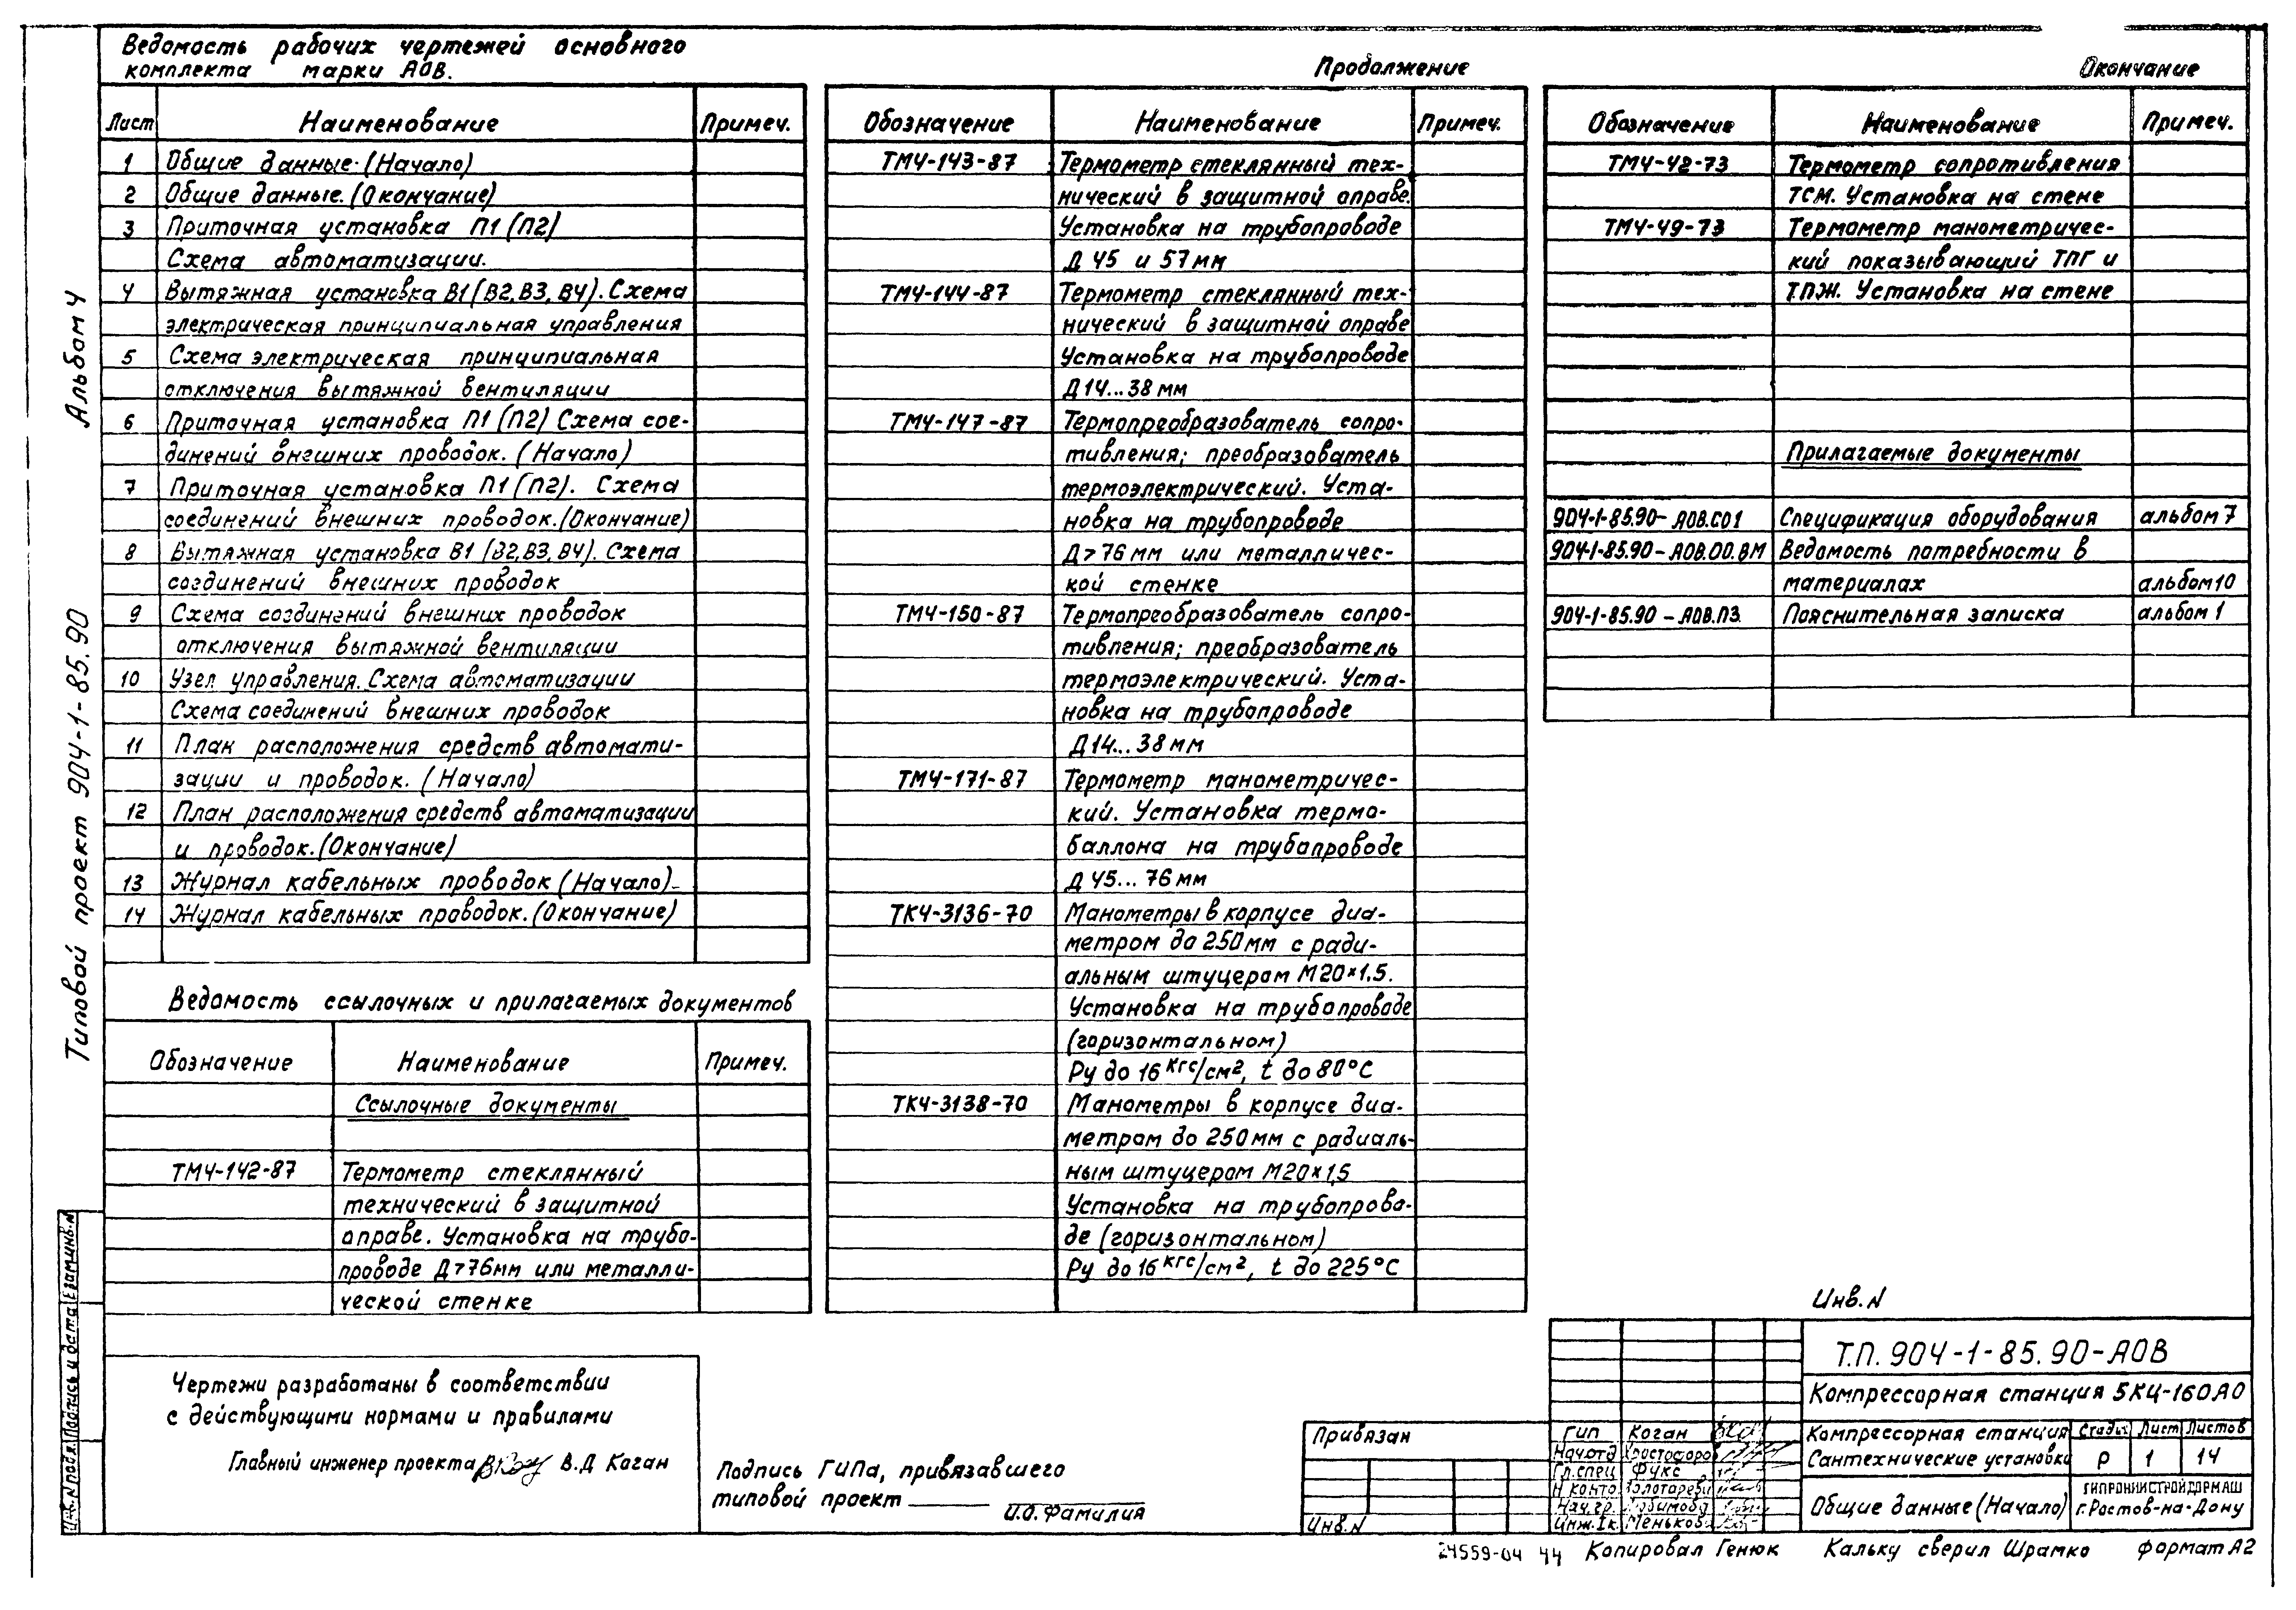 Ведомость рабочих чертежей основного
комплекта марки АОВ.
Лист Наименование Примеч.
1 Общие данные (Начало)
2 Общие данные. (Окончание)
3 Приточная установка П1 (П2)
Схема автоматизации.
4 Вытяжная установка В1 (В2, В3, В4). Схема
электрическая принципиальная управления
5 Схема электрическая принципиальная
отключения вытяжной вентиляции
6 Приточная установка П1 (П2) Схема сое-
динений внешних проводок. (Начало)
7 Приточная установка П1 (П2). Схема
соединений внешних проводок. (Окончание)
8 Вытяжная установка В1 (В2, В3, В4). Схема
соединений внешних проводок
9 Схема соединений внешних проводок
отключения вытяжной вентиляции
10 Узел управления. Схема автоматизации
Схема соединений внешних проводок
11 План расположения средств автомати-
зации и проводок. (Начало)
12 План расположения средств автоматизации
и проводок. (Окончание)
13 Журнал кабельных проводок (Начало)
14 Журнал кабельных проводок. (Окончание)
Ведомость ссылочных и прилагаемых документов
Обозначение Наименование Примеч.
Ссылочные документы
ТМ4-142-87 Термометр стеклянный
технический в защитной
оправе. Установка на трубо-
проводе Д>76мм или металли-
ческой стенке
Продолжение
Обозначение Наименование Примеч.
ТМ4-143-87 Термометр стеклянный тех-
нический в защитной оправе.
Установка на трубопроводе
Д 45 и 57 мм
ТМ4-144-87 Термометр стеклянный тех-
нический в защитной оправе
Установка на трубопроводе
Д14...38 мм
ТМ4-147-87 Термопреобразователь сопро-
тивления; преобразователь
термоэлектрический. Уста-
новка на трубопроводе
Д>76 мм или металличес-
кой стенке
ТМ4-150-87 Термопреобразователь сопро-
тивления; преобразователь
термоэлектрический. Уста-
новка на трубопроводе
Д14...38 мм
ТМ4-171-87 Термометр манометричес-
кий. Установка термо-
баллона на трубопроводе
Д 45...76 мм
ТК4-3136-70 Манометры в корпусе диа-
метром до 250мм с ради-
альным штуцером М20×1,5.
Установка на трубопроводе
(горизонтальном)
Ру до 16 кгс/см², t до 80°С
ТК4-3138-70 Манометры в корпусе диа-
метром до 250мм с радиаль-
ным штуцером М20×1,5
Установка на трубопрово-
де (горизонтальном)
Ру до 16 кгс/см², t до 225°С
Окончание
Обозначение Наименование Примеч.
ТМ4-42-73 Термометр сопротивления
ТСМ. Установка на стене
ТМ4-49-73 Термометр манометричес-
кий показывающий ТПГ и
ТПЖ. Установка на стене
Прилагаемые документы
904-1-85.90-АОВ.СО1 Спецификация оборудования альбом 7
904-1-85.90-АОВ.00.ВМ Ведомость потребности в
материалах альбом 10
904-1-85.90-АОВ.ПЗ Пояснительная записка альбом 1
Альбом 4
Типовой проект 904-1-85.90
Инв. N подл. Подпись и дата Взам.инв.N
Чертежи разработаны в соответствии
с действующими нормами и правилами
Главный инженер проекта В.Д Коган
Подпись ГИПа, привязавшего
типовой проект
И.О. Фамилия
Привязан
Инв. N
Инв. N
Т.П. 904-1-85.90-АОВ
Компрессорная станция 5КЦ-160А0
ГИП Коган
Нач.отд
Гл.спец Фукс
Н контр
Нач.гр.
Инж. Iк.
Компрессорная станция
Сантехнические установки
Стадия Лист Листов
Р 1 14
Общие данные (Начало)
ГИПРОНИИСТРОЙДОРМАШ
г. Ростов-на-Дону
24559-04 44 Копировал Генюк Кальку сверил Шрамко формат А2